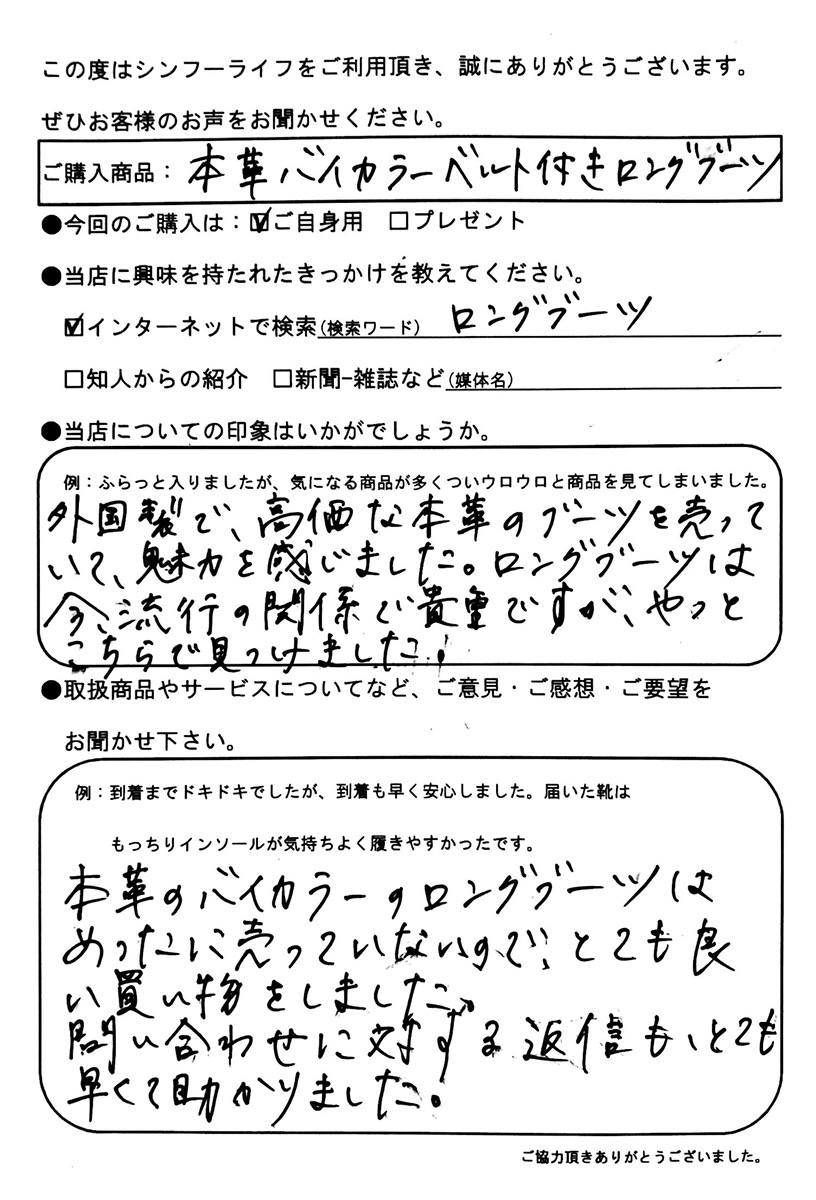 この度はシンフーライフをご利用頂き、誠にありがとうございます。
ぜひお客様のお声をお聞かせください。
ご購入商品：本革バイカラーベルト付きロングブーツ
●今回のご購入は：☑ご自身用　□プレゼント
●当店に興味を持たれたきっかけを教えてください。
☑インターネットで検索(検索ワード)　ロングブーツ
□知人からの紹介　□新聞-雑誌など(媒体名)
●当店についての印象はいかがでしょうか。
例：ふらっと入りましたが、気になる商品が多くついウロウロと商品を見てしまいました。
外国製で、高価な本革のブーツを売って
いて、魅力を感じました。ロングブーツは
今、流行の関係で貴重ですが、やっと
こちらで見つけました！
●取扱商品やサービスについてなど、ご意見・ご感想・ご要望を
お聞かせ下さい。
例：到着までドキドキでしたが、到着も早く安心しました。届いた靴は
もっちりインソールが気持ちよく履きやすかったです。
本革のバイカラーのロングブーツは
めったに売っていないので、とても良
い買い物をしました。
問い合わせに対する返信も、とても
早くて助かりました。
ご協力頂きありがとうございました。